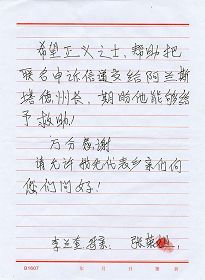 希望正义之士,帮助把
联名申诉信递交给阿兰斯
塔德州长,期盼他能够给
予救助!
万分感谢
请允许我先代表乡亲们向
您们问好!
李兰奎 张
B1607 年 月 日 第 页